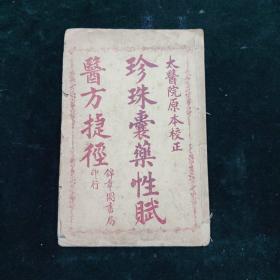 太醫院原本校正
珍珠囊藥性賦
醫方捷徑
錦章圖書局
印行